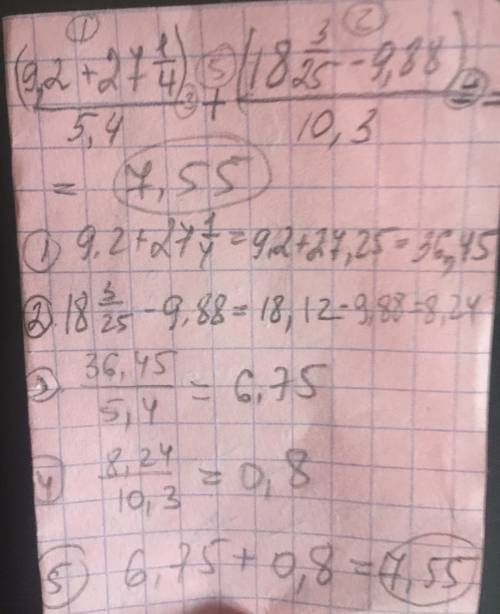 ① ②
(9,2 + 27 1/4) ⑤ (18 3/25 - 9,88) ④
③ + =
5,4 10,3
= 7,55
① 9,2 + 27 1/4 = 9,2 + 27,25 = 36,45
② 18 3/25 - 9,88 = 18,12 - 9,88 = 8,24
③ 36,45/5,4 = 6,75
④ 8,24/10,3 = 0,8
⑤ 6,75 + 0,8 = 7,55